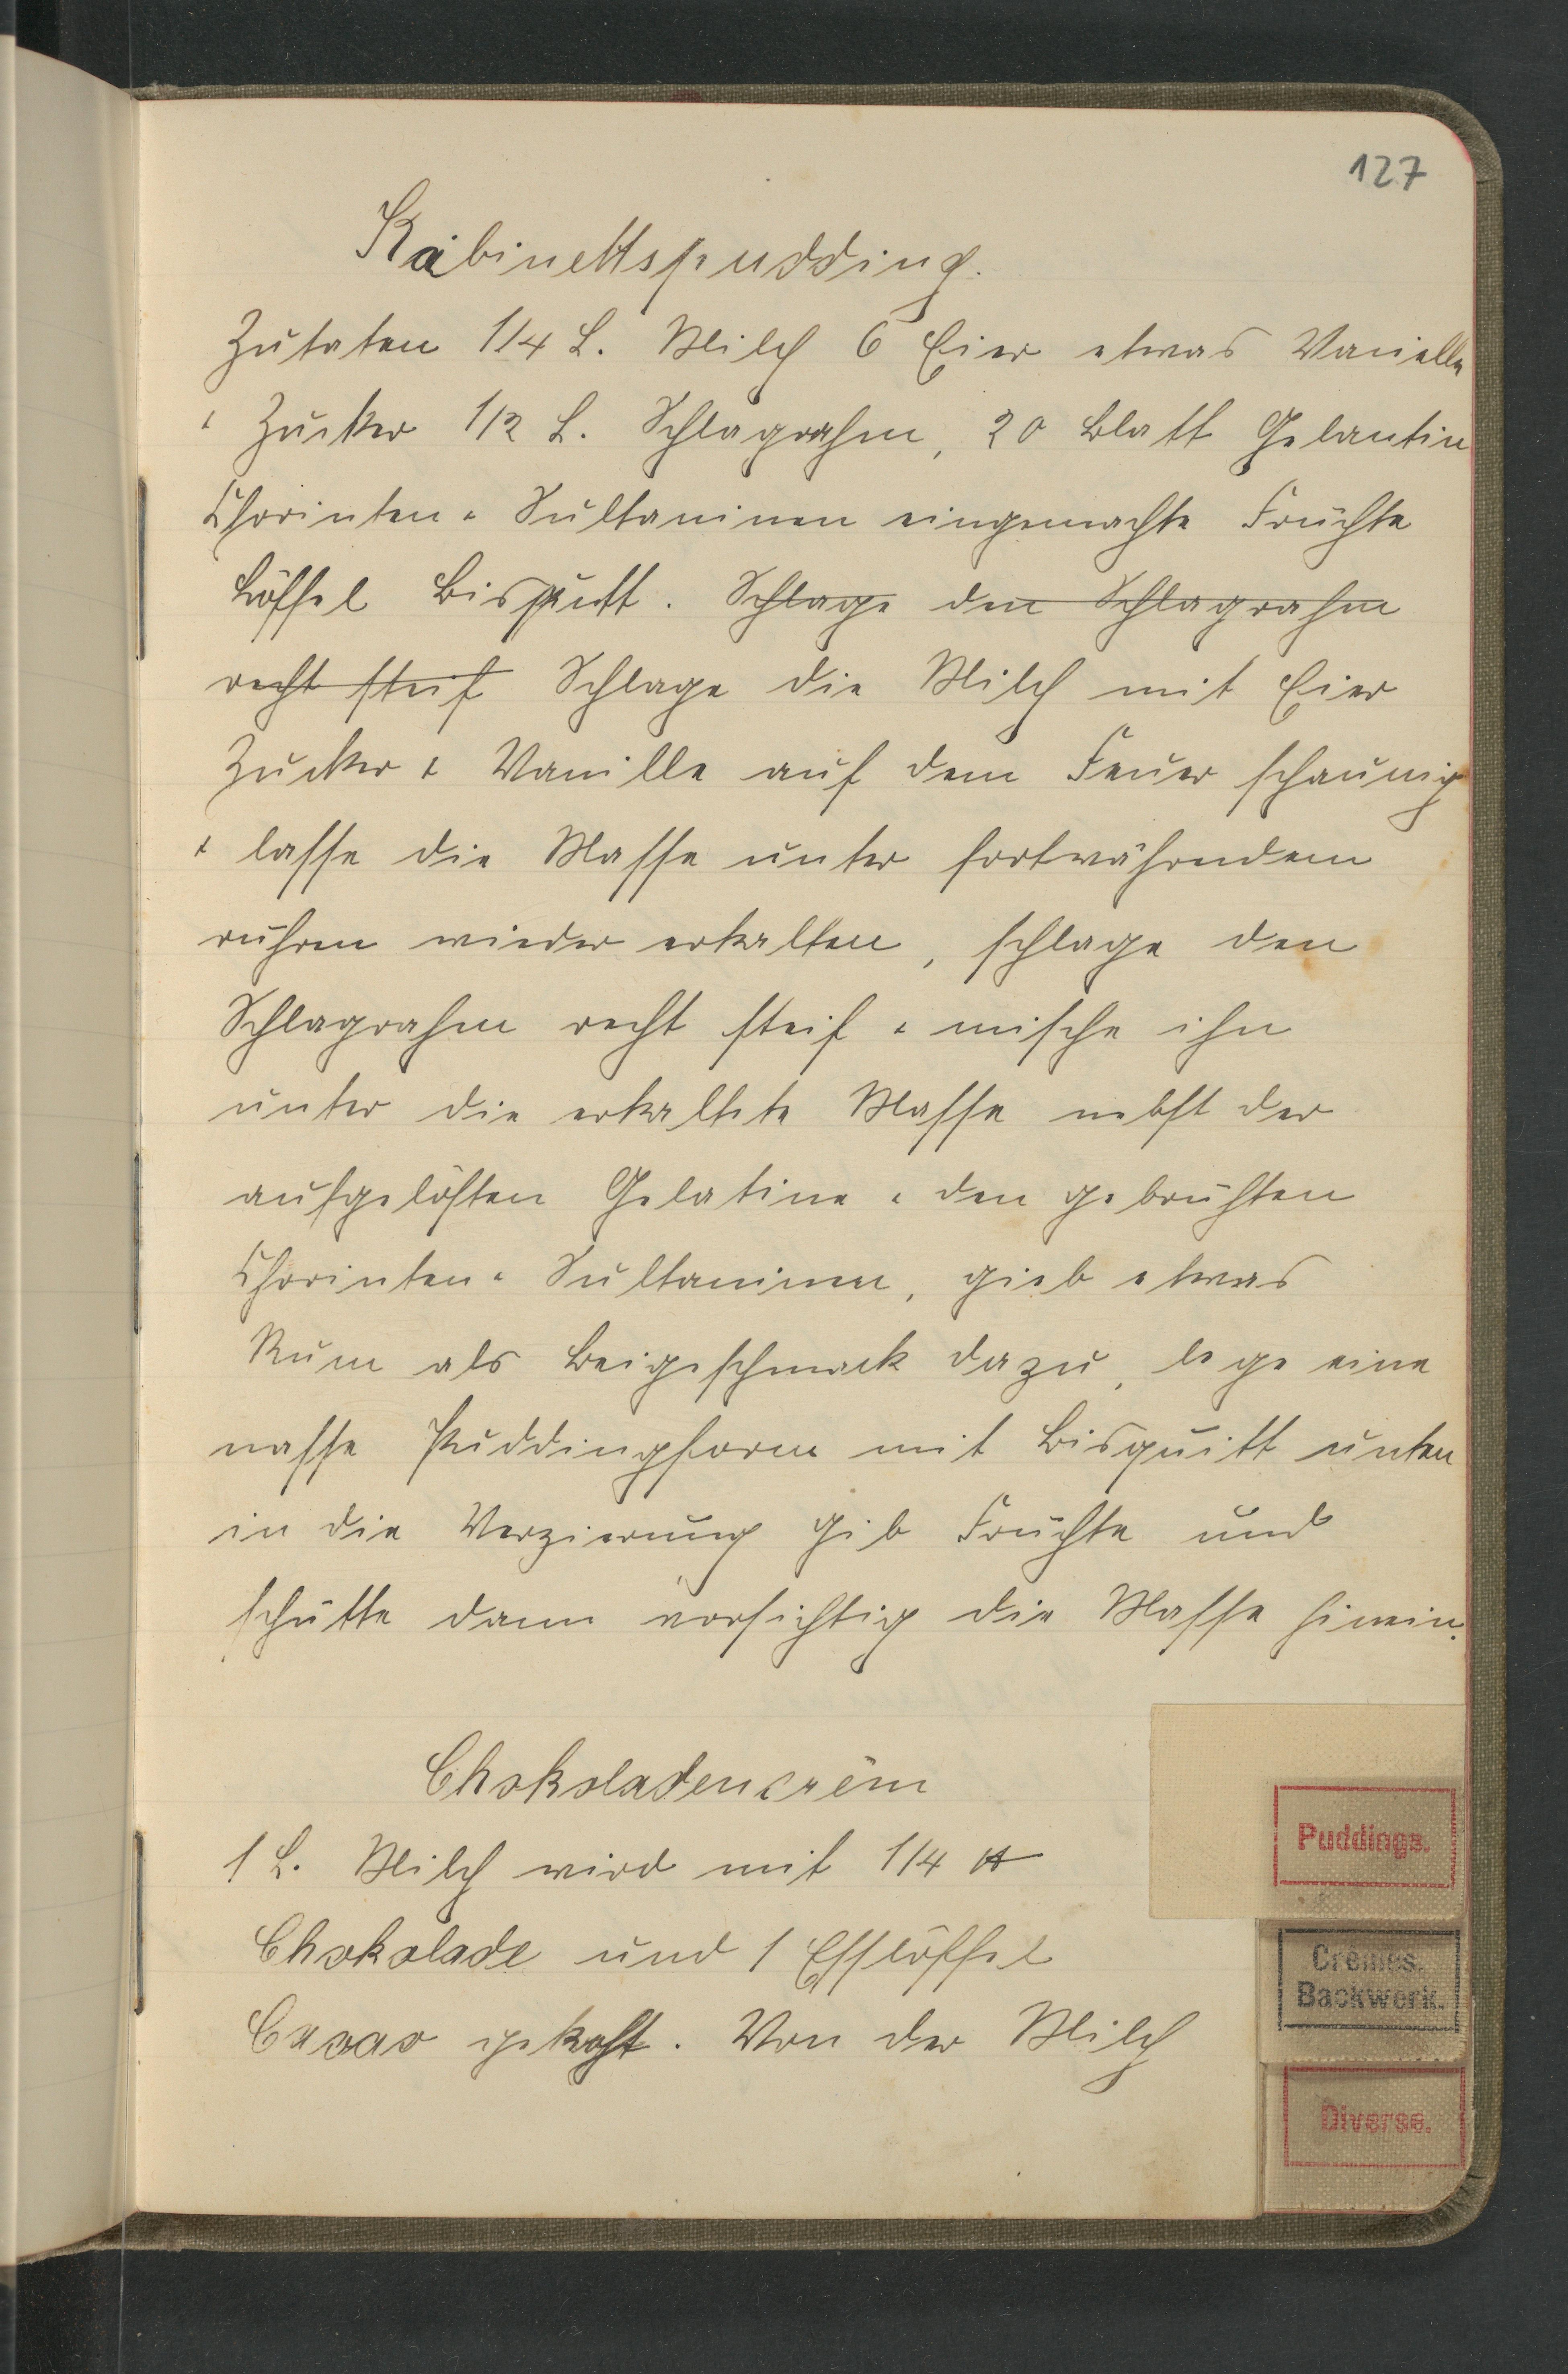 127
Kabinettspudding.
Zutaten 1/4 L. Milch 6 Eier etwas Vanielle
& Zucker 1/2 L. Schlagrahm, 20 Blatt Gelantin
Chorinten & Sultaninen eingemachte Früchte
Löffel Bisquitt. Schlage den Schlagrahm
recht steif Schlage die Milch mit Eier
Zucker & Vanille auf dem Feuer schaumig
& lasse die Masse unter fortwährendem
rühren wieder erkalten, schlage den
Schlagrahm recht steif & mische ihn
unter die erkaltete Masse nebst der
aufgelösten Gelatine & den gebrühten
Chorinten & Sultaninen, gieb etwas
Rum als Beigeschmack dazu, lege eine
nasse Puddingform mit Bisquitt unten
in die Verzierung gib Früchte und
schütte dann vorsichtig die Masse hinein.
Chokoladencrêm
1 L. Milch wird mit 1/4 ℔
Chokolade und 1 Esslöffel
Cacao gekocht. Von der Milch
Puddings.
Crêmes.
Backwerk.
Diverse.